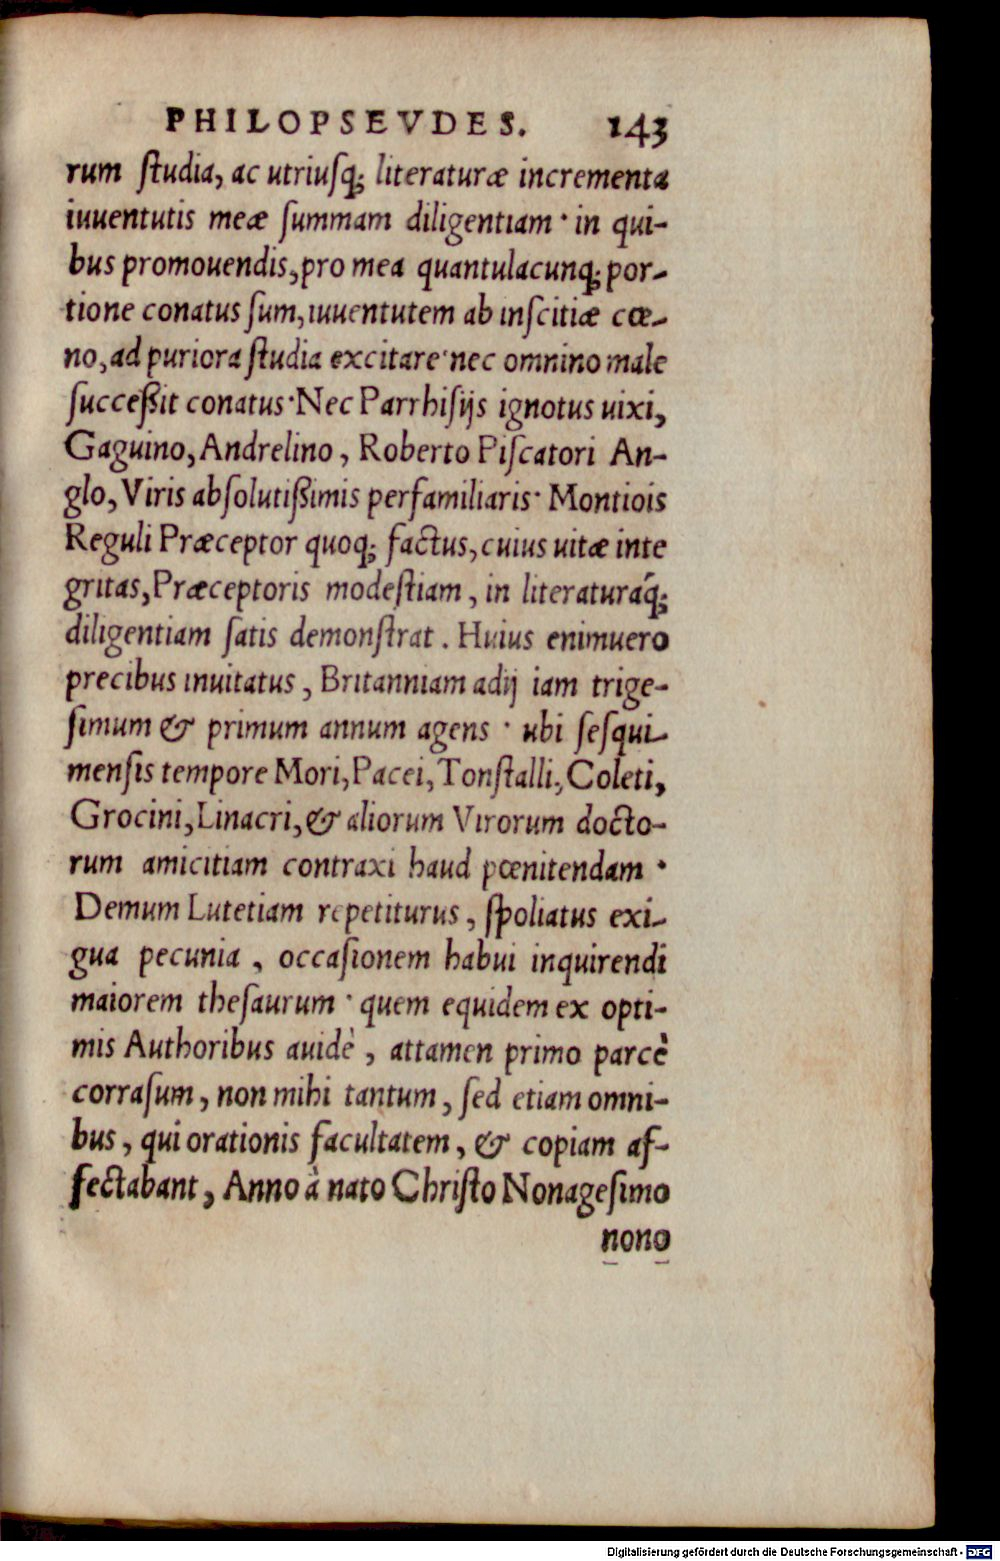 PHILOPSEVDES. 143
rum ſtudia, ac utriuſq; literaturæ incrementa
iuuentutis meæ ſummam diligentiam · in qui-
bus promouendis, pro mea quantulacunq; por-
tione conatus ſum, iuuentutem ab inſcitiæ cœ-
no, ad puriora ſtudia excitare · nec omnino male
ſucceßit conatus · Nec Parrhiſijs ignotus uixi,
Gaguino, Andrelino, Roberto Piſcatori An-
glo, Viris abſolutißimis perfamiliaris · Montiois
Reguli Præceptor quoq; factus, cuius uitæ inte
gritas, Præceptoris modeſtiam, in literaturáq;
diligentiam ſatis demonſtrat. Huius enimuero
precibus inuitatus, Britanniam adij iam trige-
ſimum & primum annum agens · ubi ſeſqui-
menſis tempore Mori, Pacei, Tonſtalli, Coleti,
Grocini, Linacri, & aliorum Virorum docto-
rum amicitiam contraxi haud pœnitendam ·
Demum Lutetiam repetiturus, ſpoliatus exi-
gua pecunia, occaſionem habui inquirendi
maiorem theſaurum · quem equidem ex opti-
mis Authoribus auidè, attamen primo parcè
corraſum, non mihi tantum, ſed etiam omni-
bus, qui orationis facultatem, & copiam af-
fectabant, Anno à nato Chriſto Nonageſimo
nono
Digitalisierung gefördert durch die Deutsche Forschungsgemeinschaft - DFG